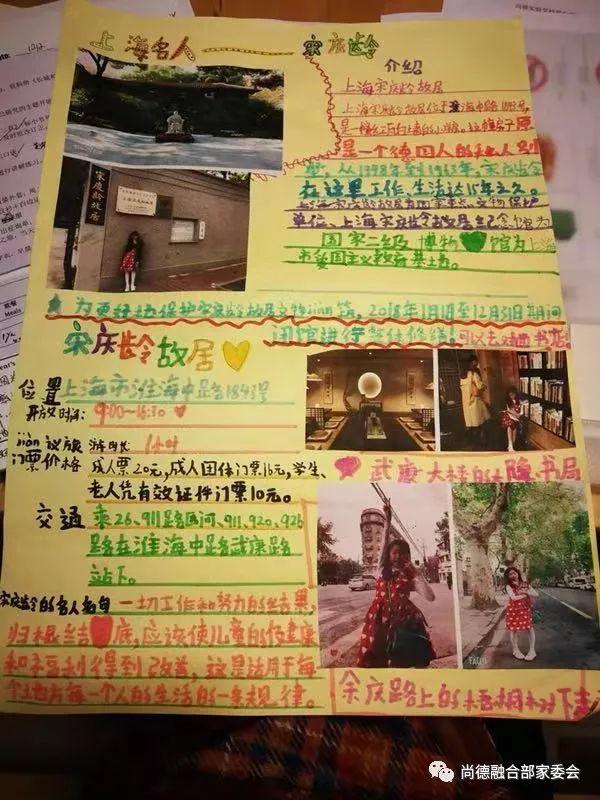 上海名人——宋庆龄
介绍
上海宋庆龄故居
上海宋庆龄故居位于淮海中路1843号,
是一幢红瓦白墙的小楼。这幢房子原
是一个德国人的私人别
墅,从1948年到1963年,宋庆龄
在这里工作、生活达15年之久。
上海宋庆龄故居为国家重点文物保护
单位、上海宋庆龄故居纪念馆为
国家二级博物馆为上海
市爱国主义教育基地。
为更好地保护宋庆龄故居文物jiàn筑,2018年1月1日至12月31日期间
闭馆进行整体修缮!可以去对面书店
宋庆龄故居
位置 上海市淮海中路1843号
开放时间: 9:00~16:30
jiàn议游 游时长 1小时
门票价格 成人票20元,成人团体门票16元,学生、
老人凭有效证件门票10元。
交通 乘26、911路区间、911、920、926
路在淮海中路武康路
站下。
宋庆龄的名人名句 一切工作和努力的结果,
归根结底,应该使儿童的健康
和福利得到改善,这是适用于每
个地方每一个人的生活的一条规律。
武康大楼的大隐书局
余庆路上的梧桐树下走
宋庆龄故居
尚德融合部家委会